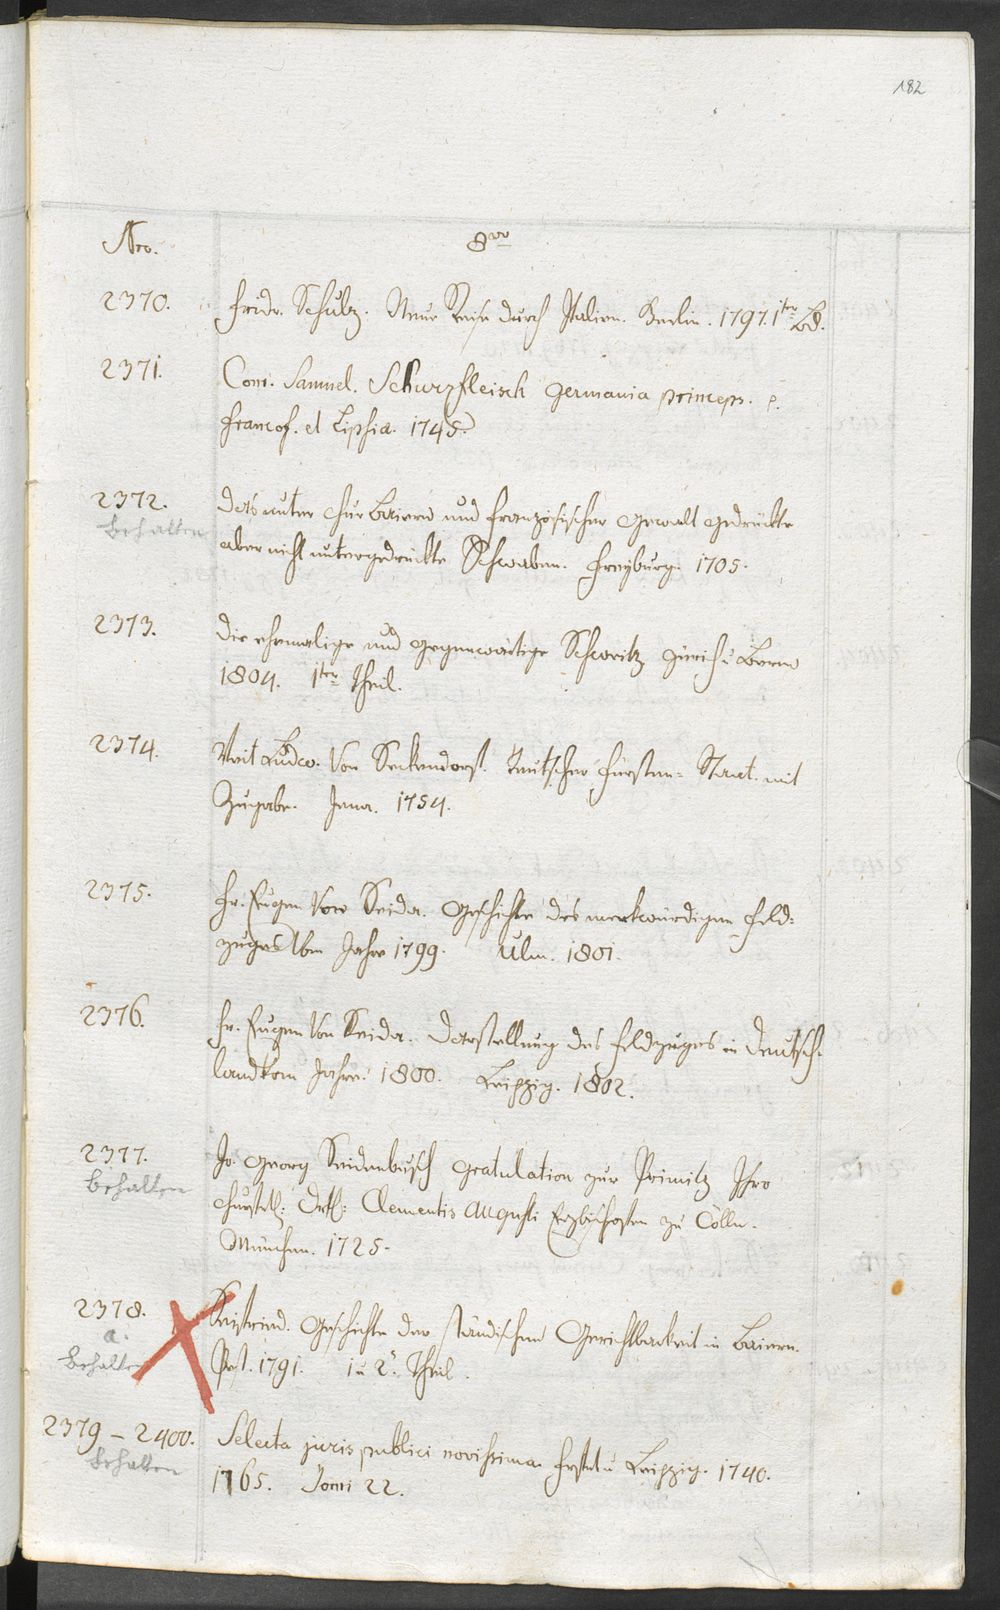 182
Nro. 8vo
2370. Fridr. Schulz. Neue Reise durch Italien. Berlin. 1797. 1ter Bd.
2371. Conr. Samuel. Schurzfleisch Germania princeps. p.
Francof. et Lipsia. 1745.
2372. Das unter Chur Baiern und französischer Gewalt gedrückte
behalten aber nicht untergedrückte Schwaben. Freyburg. 1705.
2373. Die ehemalige und gegenwärtige Schweitz Zürich u Bern
1804. 1ter Theil.
2374. Veit Ludw. Von Seckendorf. Teutscher Fürsten= Staat. mit
Zugabe. Jena. 1754.
2375. Fr. Eugen Von Seida. Geschichte des merkwürdigen Feld=
zuges Vom Jahre 1799. Ulm. 1801.
2376. Fr. Eugen Von Seida. Darstellung des Feldzuges in Deutsch=
land Vom Jahre 1800. Leipzig. 1802.
2377. Jo. Georg Seidenbusch Gratulation zur Primitz Ihro
behalten Churftl: Drtl: Clementis Augusti Erzbischofen zu Cölln.
München. 1725.
2378. Seyfried. Geschichte der ständischen Gerichtbarkeit in Baiern.
a.
behalten Pest. 1791. 1 u 2r Theil.
2379 – 2400. Selecta juris publici novissima Frft u Leipzig. 1740.
behalten 1765. Tomi 22.